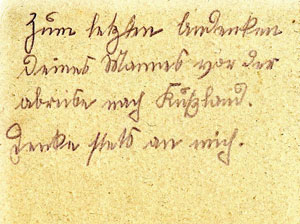 Zum letzten Andenken
Deines Mannes vor der
abreise nach Rußland.
Denke stets an mich.